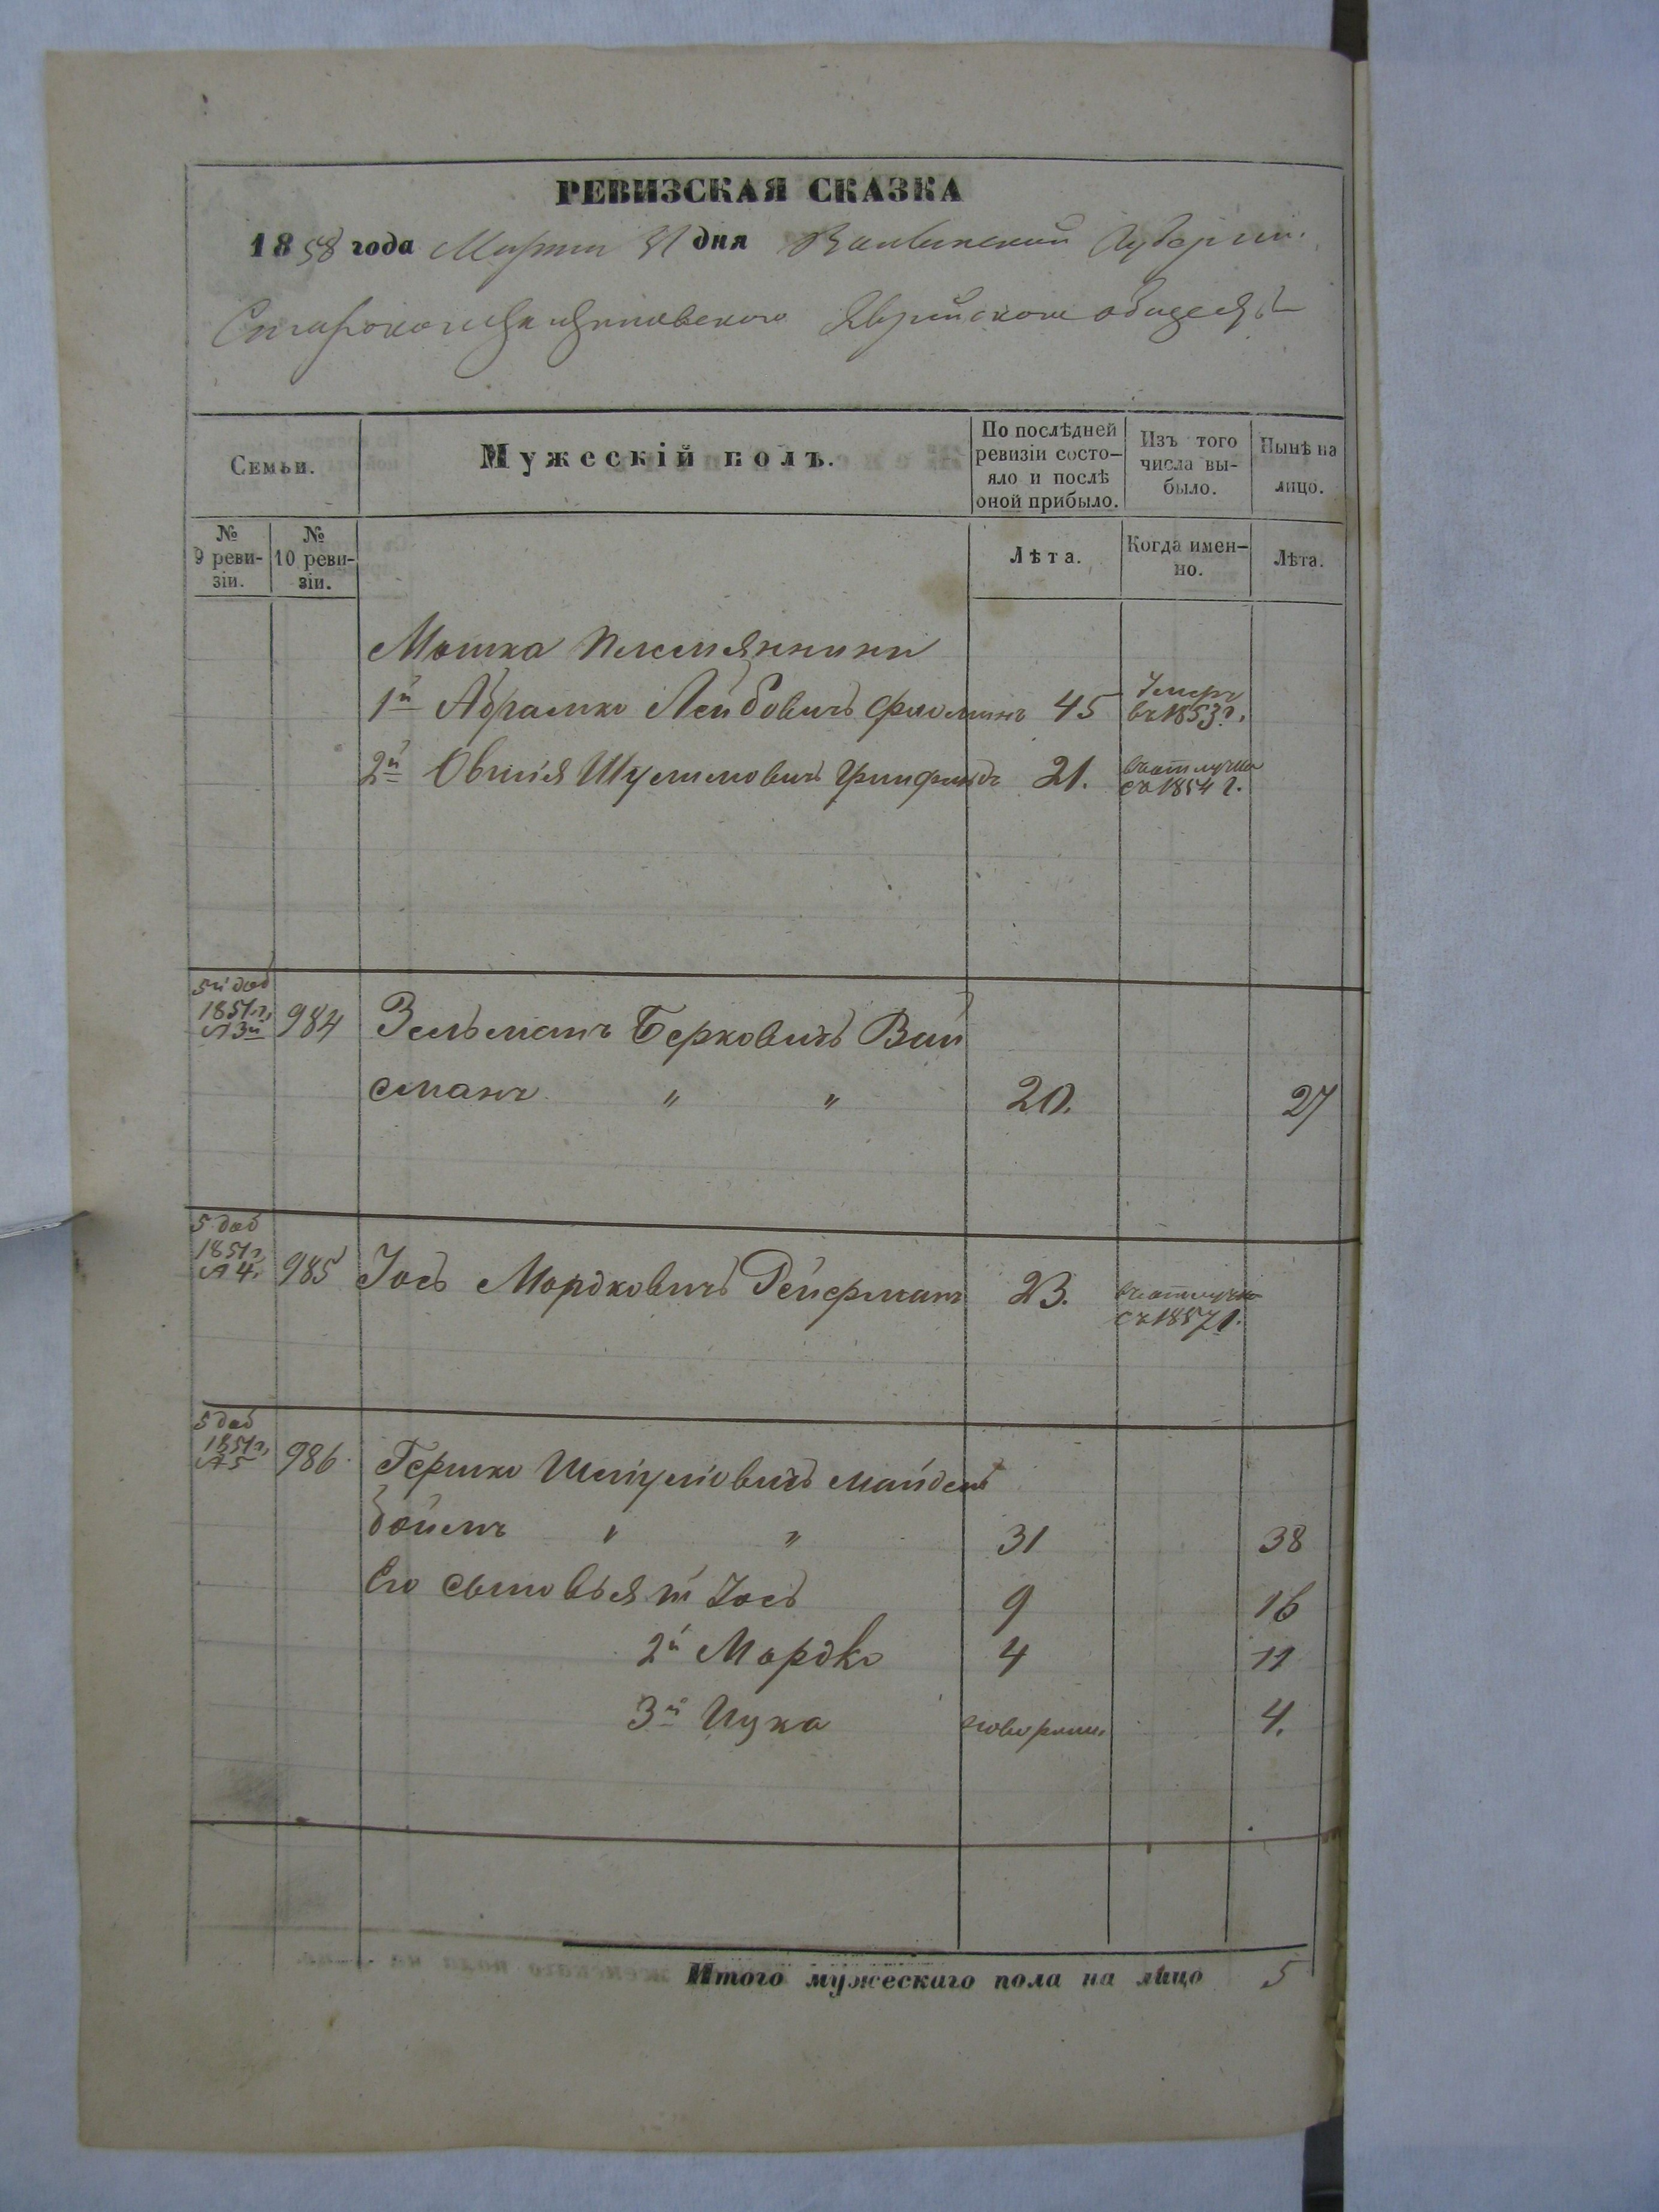 РЕВИЗСКАЯ СКАЗКА
1858 года Марта 31 дня Волынской Губерніи
Староконстантиновского Еврейского общества
Семьи.
Мужескій полъ.
По послѣдней ревизіи состо-
яло и послѣ
оной прибыло.
Изъ того
числа вы-
было.
Нынѣ на
лицо.
№
9 реви-
зіи.
№
10 реви-
зіи.
Лѣта.
Когда имен-
но.
Лѣта.
Мошка племянники
1й Абрамко Лейбовичъ 45 Умеръ
въ 1853 г.
2й Овшія Шулимовичъ 21. въ отлучке
съ 1854 г.
5й доб
1851 г.
№ 3й 984 Зельманъ Берковичъ Вай
сманъ " " 20. 27
5 доб
1851 г.
№ 4. 985 Іось Мордковичъ Ройфманъ 23. въ отлучке
съ 1857 г.
5 доб
1851 г.
№ 5 986 Гершко Шмулiовичъ Майден
боймъ " " 31 38
Его сыновья 1й Іось 9 16
2й Мордко 4 11
3й Ицка новорожд. 4.
Итого мужескаго пола на лицо 5